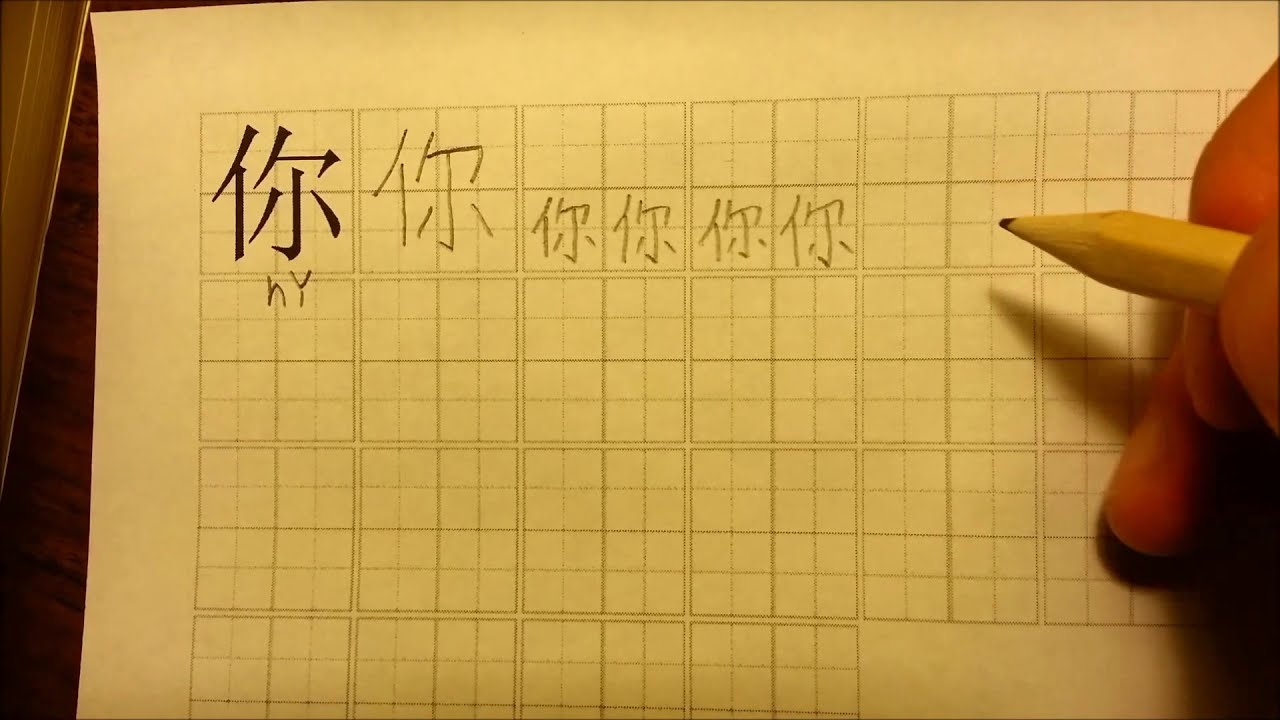 你 你 你 你 你 你